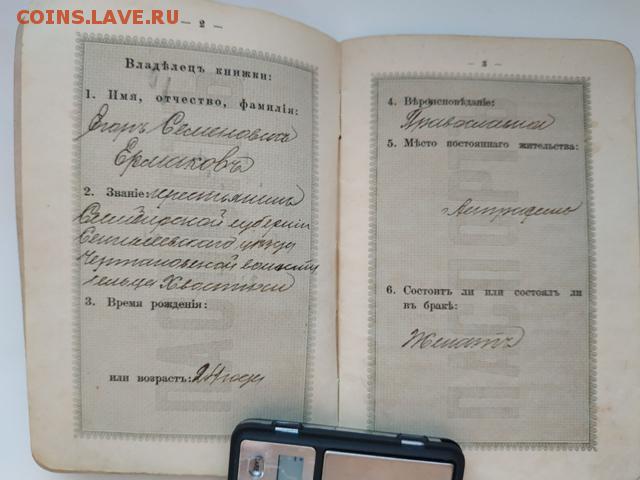 COINS.LAVE.RU
— 2 —
Владѣлецъ книжки:
1. Имя, отчество, фамилія:
Егоръ Семеновичъ
Ермаковъ
2. Званіе: крестьянинъ
Симбирской губерніи
Сенгилеевскаго уѣзда
Чертановской волости
сельца Хвостихи
3. Время рожденія:
или возрастъ: 24 года
3
4. Вѣроисповѣданіе:
Православный
5. Мѣсто постояннаго жительства:
6. Состоитъ ли или состоялъ ли
въ бракѣ:
Женатъ
ПАСПОРТ